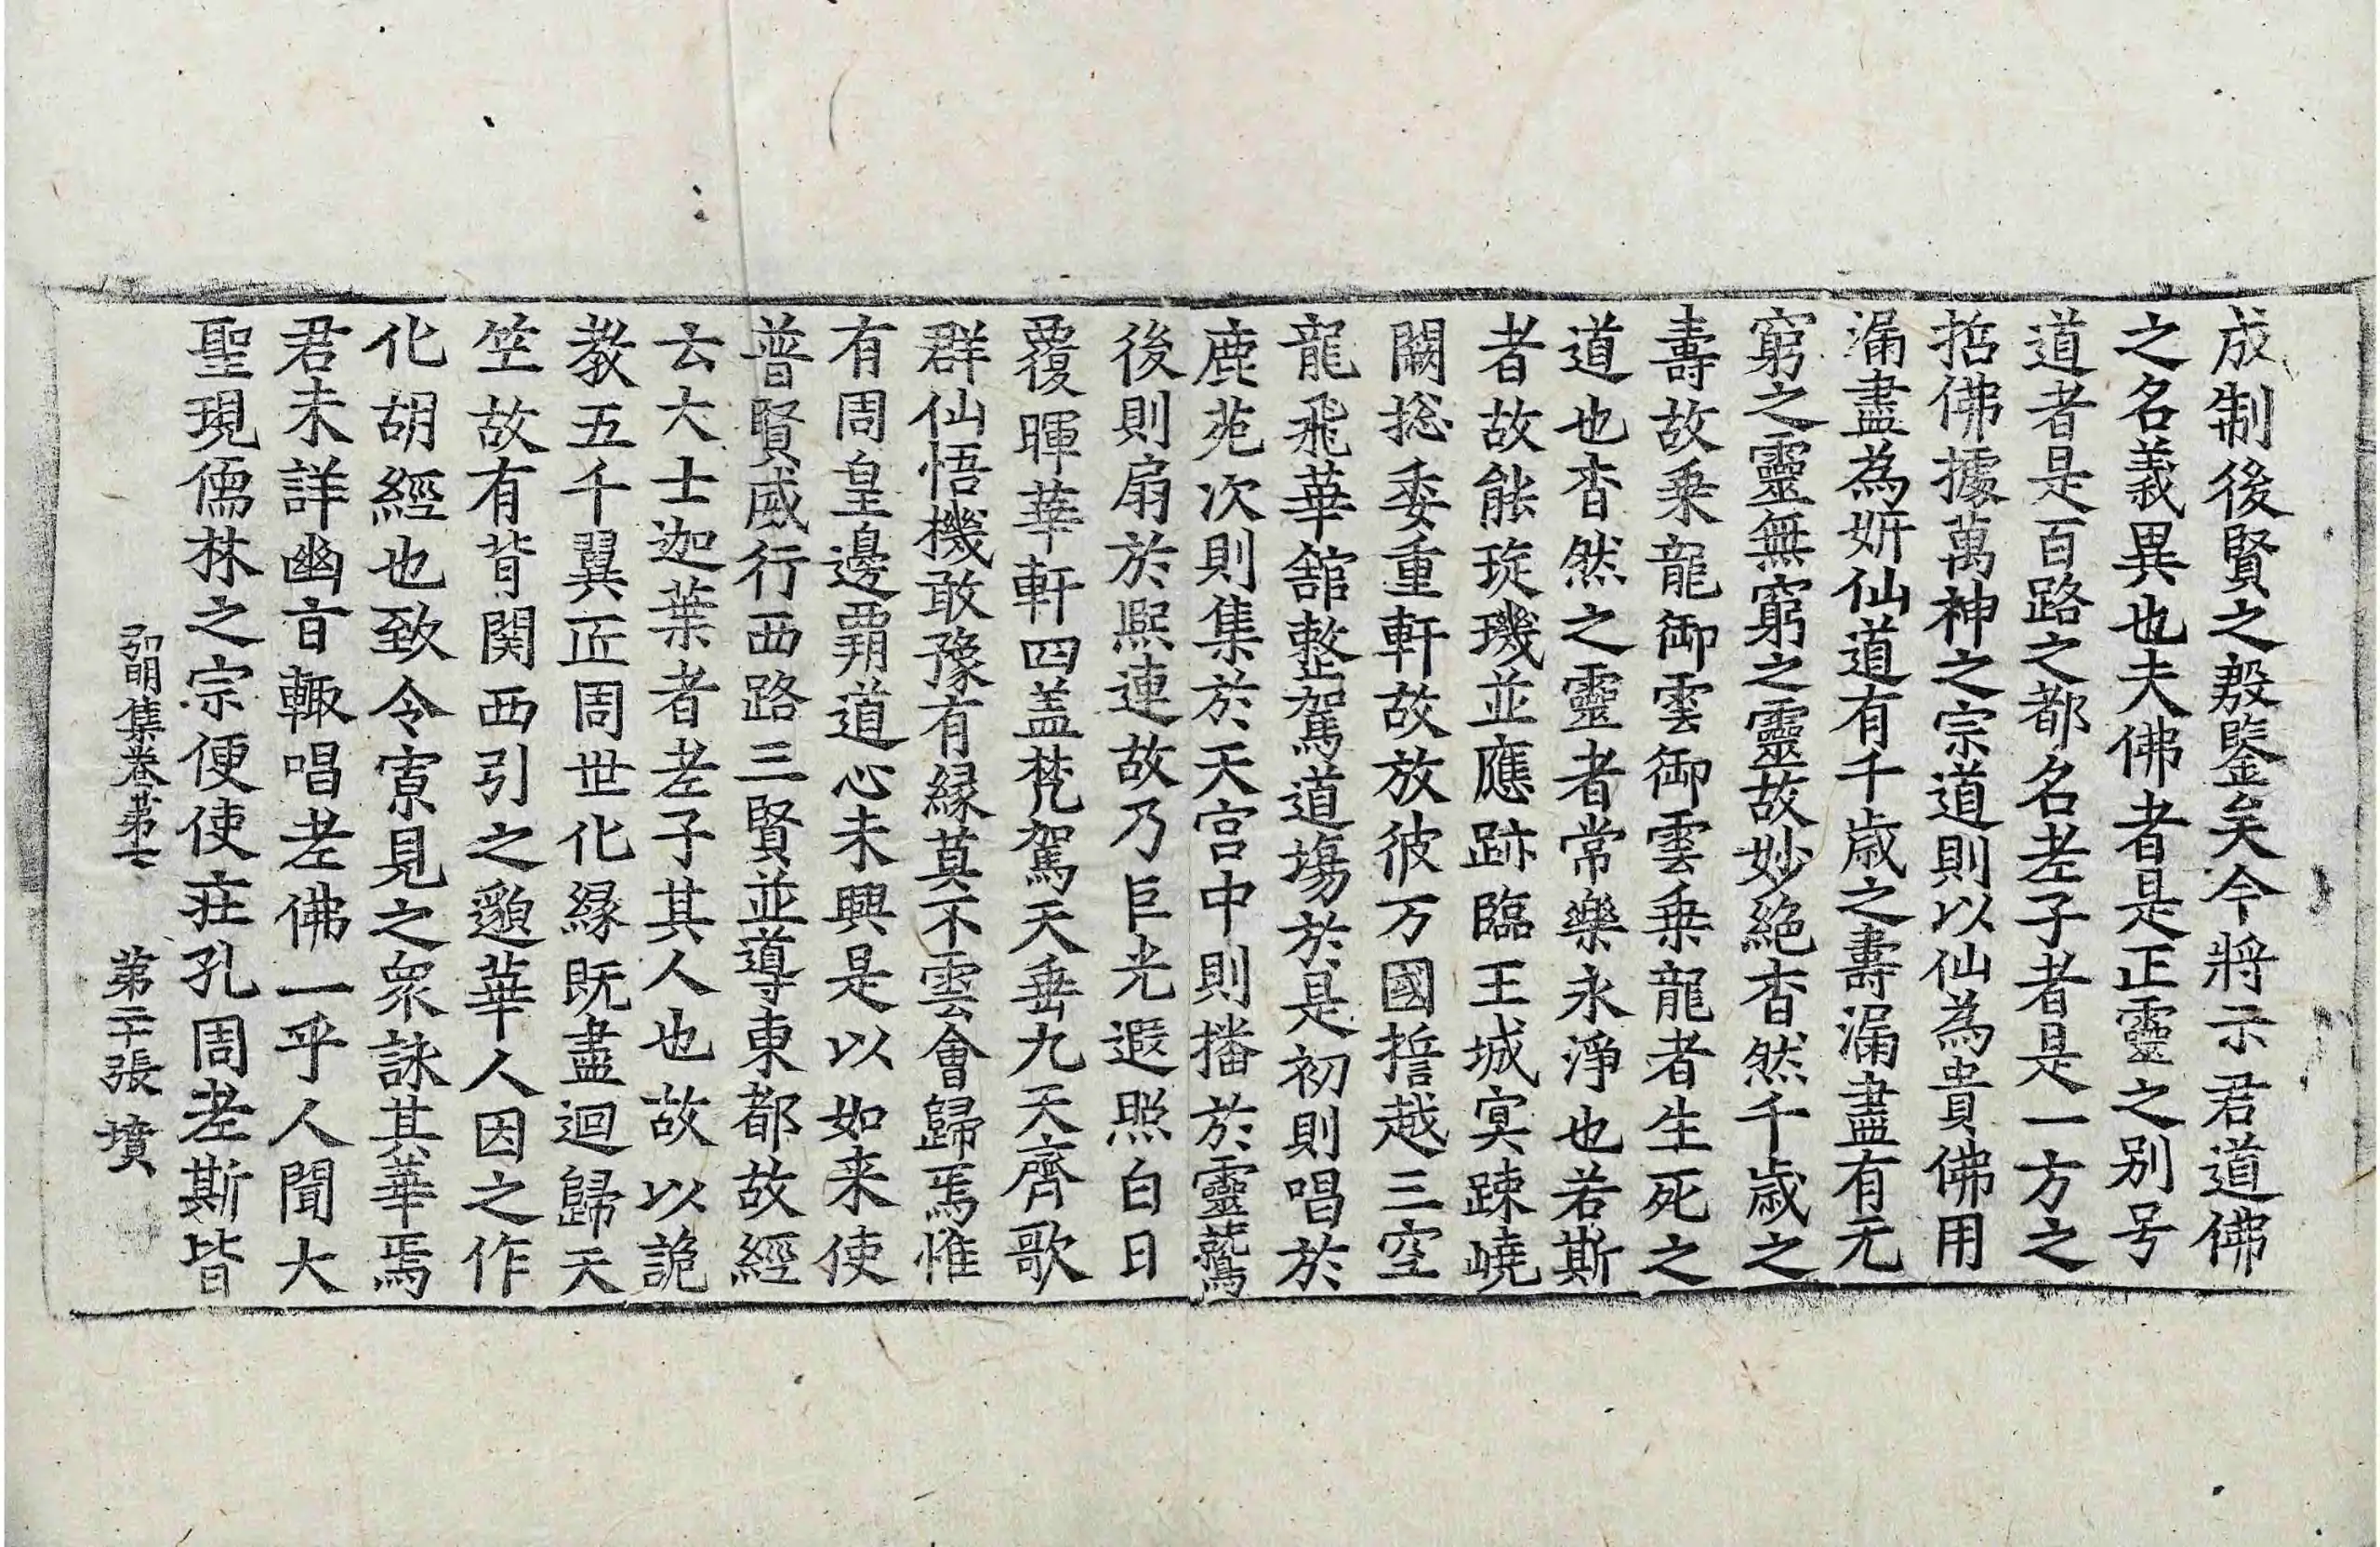 成制後賢之殷鑒矣今將示君道佛
之名義異也夫佛者是正靈之别号
道者是百路之都名老子者是一方之
括佛據萬神之宗道則以仙為貴佛用
漏盡為妍仙道有千歳之壽漏盡有无
窮之靈無窮之靈故妙絶杳然千歳之
壽故乘龍御雲御雲乗龍者生死之
道也杳然之靈者常樂永淨也若斯
者故能琁璣並應跡臨王城㝠踈嶢
闕捴委重軒故放彼万國誓越三空
龍飛華舘整駕道塲於是初則唱於
鹿苑次則集於天宫中則播於靈鷲
後則扇於熈連故乃巨光遐照白日
覆暉華軒四盖梵駕天垂九天齊歌
群仙悟機敢豫有縁莫不雲會歸焉惟
有周皇邊覇道心未興是以如来使
普賢威行西路三賢並導東都故經
云大士迦葉者老子其人也故以詭
教五千翼匠周世化縁既盡迴歸天
竺故有背関西引之邈華人因之作
化胡經也致令寮見之衆詠其華焉
君未詳幽㫖輙唱老佛一乎人聞大
聖現儒林之宗便使莊孔周老斯皆
弘明集卷第七　第二十張　墳